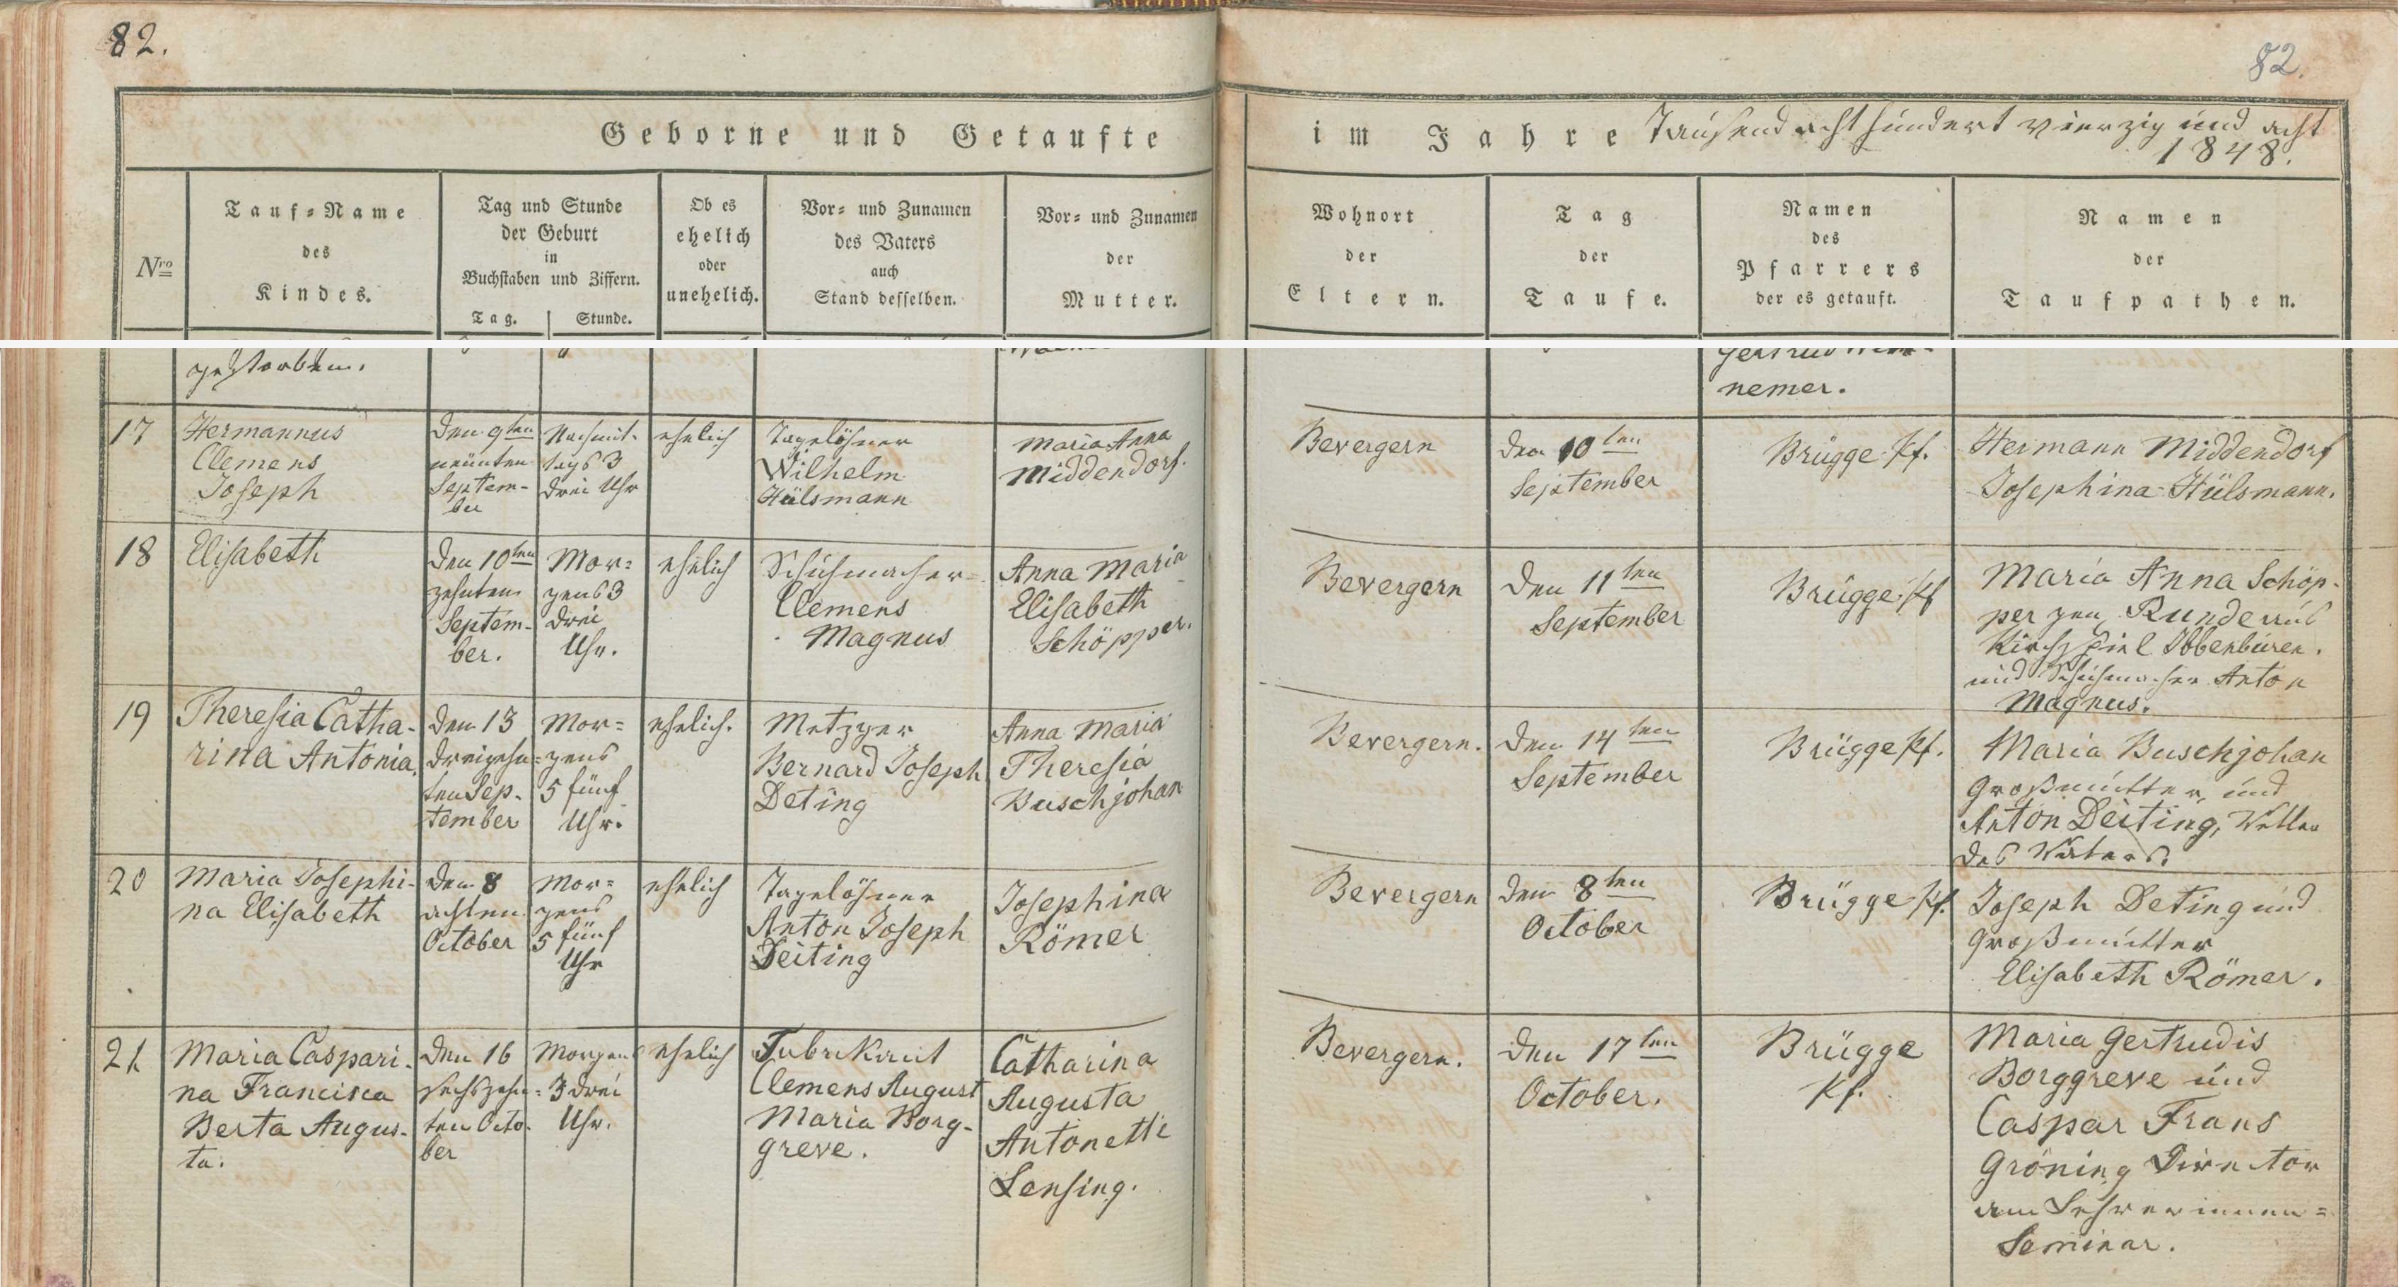 82.
82.
Geborne und Getaufte
im Jahre Tausend acht hundert vierzig und acht
1848.
Nro
Tauf=Name
des
Kindes.
Tag und Stunde
der Geburt
in
Buchstaben und Ziffern.
Tag.
Stunde.
Ob es
ehelich
oder
unehelich.
Vor= und Zunamen
des Vaters
auch
Stand desselben.
Vor= und Zunamen
der
Mutter.
Wohnort
der
Eltern.
Tag
der
Taufe.
Namen
des
Pfarrers
der es getauft.
Namen
der
Taufpathen.
gestorben.
Gertrud
nemer.
17
Hermannus
Clemens
Joseph
Den 9ten
neunten
Septem-
ber
Nachmit-
tags 3
drei Uhr
ehelich
Tagelöhner
Wilhelm
Hülsmann
Maria Anna
Middendorf.
Bevergern
den 10ten
September
Brügge Pf.
Hermann Middendorf
Josephina Hülsmann.
18
Elisabeth
Den 10ten
zehnten
Septem-
ber.
Mor=
gens 3
drei
Uhr.
ehelich
Schuhmacher
Clemens
Magnus
Anna Maria
Elisabeth
Schöpper.
Bevergern
Den 11ten
September
Brügge Pf
Maria Anna Schöp-
per gen Runde aus
Kirchspiel Ibbenbüren.
und Schuhmacher Anton
Magnus.
19
Theresia Catha-
rina Antonia.
Den 13
dreizehn=
ten Sep-
tember
Mor=
gens
5 fünf
Uhr.
ehelich.
Metzger
Bernard Joseph
Deting
Anna Maria
Theresia
Buschjohan
Bevergern.
Den 14ten
September
Brügge Pf.
Maria Buschjohan
Großmutter und
Anton Deiting, Vetter
des Vaters.
20
Maria Josephi-
na Elisabeth
Den 8
achten
October
Mor=
gens
5 fünf
Uhr
ehelich
Tagelöhner
Anton Joseph
Deiting
Josephina
Römer
Bevergern
Den 8ten
October
Brügge Pf.
Joseph Deting und
Großmutter
Elisabeth Römer.
21
Maria Caspari-
na Francisca
Berta Augus-
ta.
Den 16
sechszehn=
ten Octo-
ber
Morgens
3 drei
Uhr.
ehelich
Fabrikant
Clemens August
Maria Borg-
greve.
Catharina
Augusta
Antonetti
Lensing.
Bevergern.
Den 17ten
October.
Brügge
Pf.
Maria Gertrudis
Borggreve und
Caspar Frans
Gröning Director
am Lehrerinnen=
Seminar.